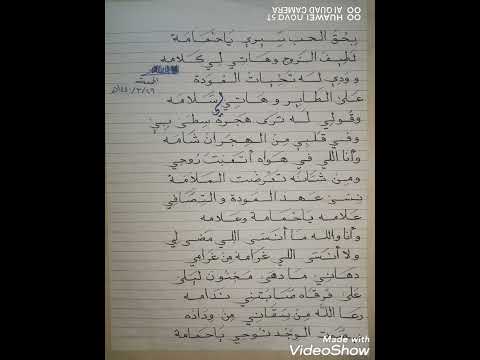 OO HUAWEI nova 5T
OO AI QUAD CAMERA
بحق الحب سيري ياحمامة
لطيف الروح وهاتي لي كلامه
وودي له تحيات المودة
على الطاير وهاتي لي سلامه
١٤٤٠/٣/٢٩هـ
وقولي له ترى هجره سطى بي
وفي قلبي من الهجران شامه
وأنا اللي في هواه أتعبت روحي
ومن شانه تعرضت الملامة
نسى عهد المودة والتصافي
علامه ياحمامة وعلامه
وأنا والله ما أنسى اللي مضى لي
ولا أنسى اللي غرامه من غرامي
دهاني ما دهى مجنون ليلى
على فرقاه صابتني ندامه
رعا الله من سقاني من وداده
الوجد نوحي ياحمامة
Made with
VideoShow